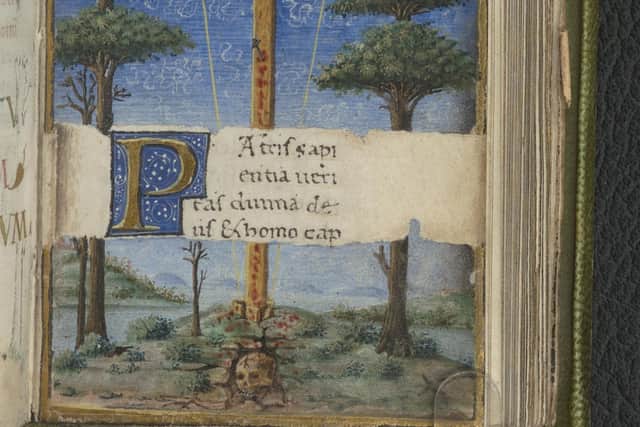 PAtris sapi
entia ueri
tas diuina de
us & homo cap
V
VM.